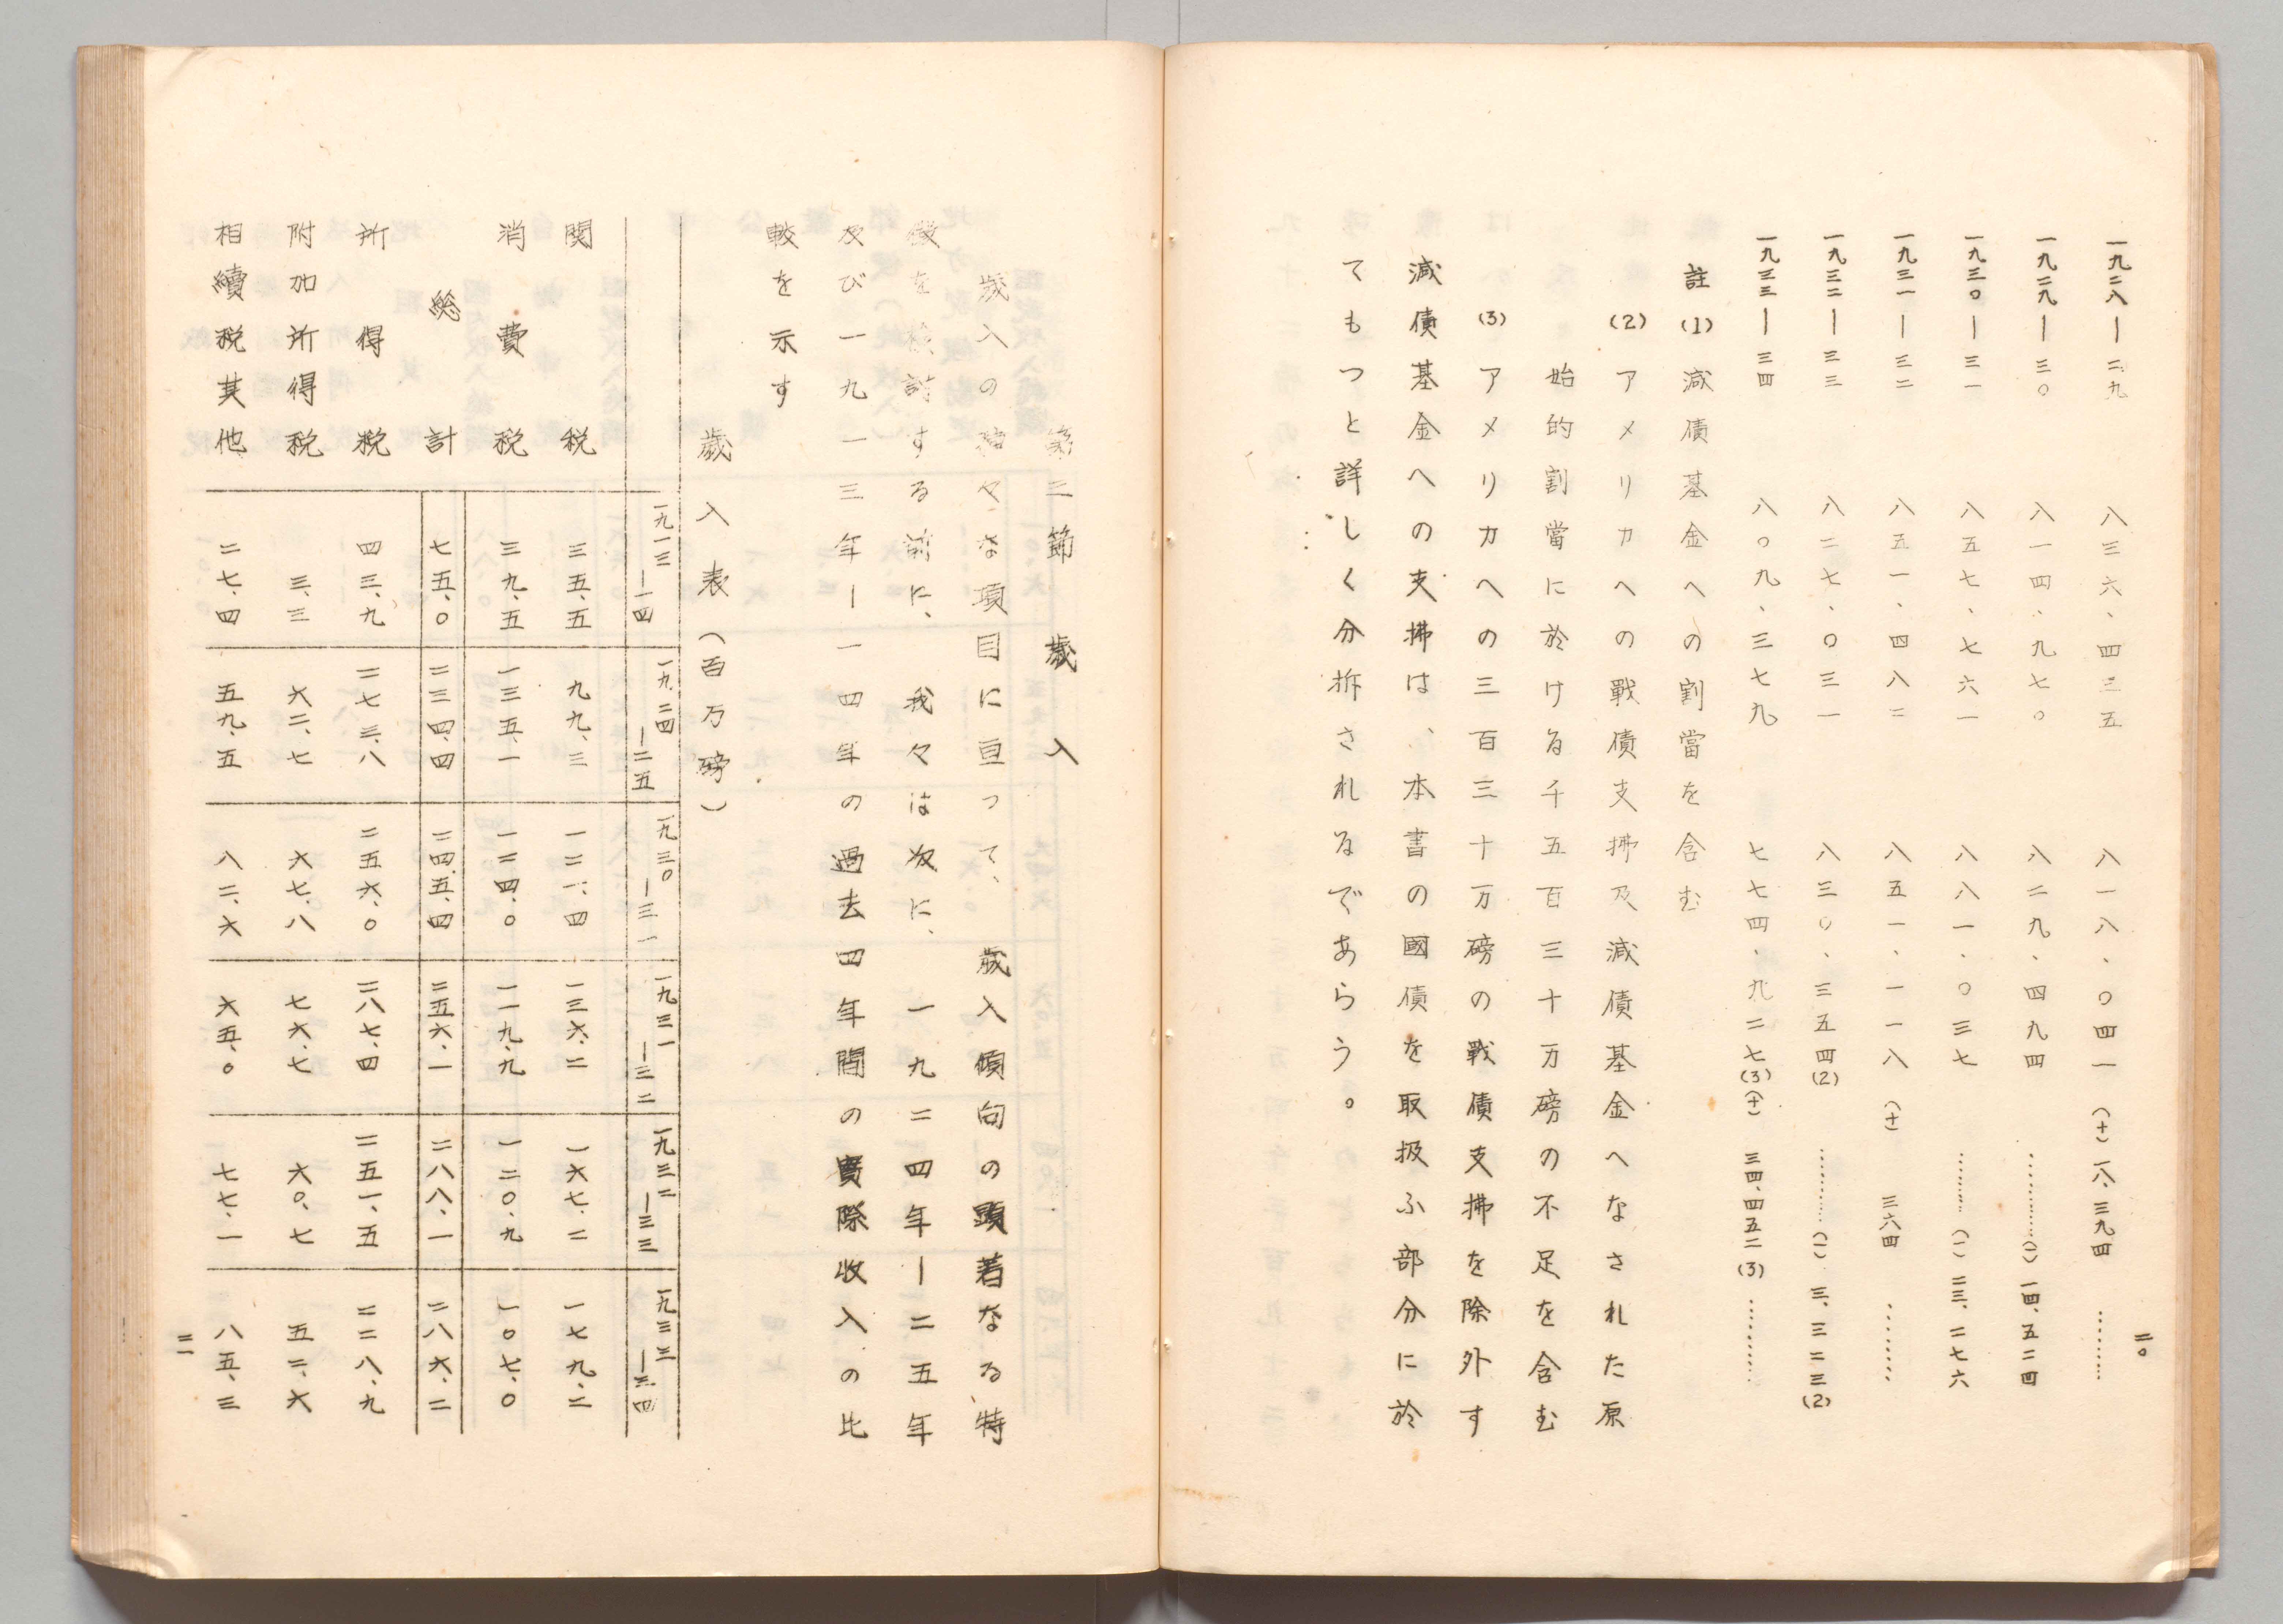 二〇
一九二八―二九 八三六、四三五 八一八、〇四一 (十)一八、三九四 ………
一九二九―三〇 八一四、九七〇 八二九、四九四 …………(一)一四、五二四
一九三〇―三一 八五七、七六一 八八一、〇三七 …………(一)二三、二七六
一九三一―三二 八五一、四八二 八五一、一一八 (十) 三六四 ………
一九三二―三三 八二七、〇三一 八三〇、三五四(2) …………(一)三、三二三(2)
一九三三―三四 八〇九、三七九 七七四、九二七(3)(十)三四、四五二(3) …………
註 (1) 減債基金への割當を含む
(2) アメリカへの戰債支拂及減債基金へなされた原
始的割當に於ける千五百三十万磅の不足を含む
(3) アメリカへの三百三十万磅の戰債支拂を除外す
減債基金への支拂は、本書の國債を取扱ふ部分に於
てもつと詳しく分拆されるであらう。
第三節 歳入
歳入の種々な項目に亘つて、歳入傾向の顕著なる特
徴を検討する前に、我々は次に、一九二四年―二五年
及び一九一三年―一四年の過去四年間の實際收入の比
較を示す
歳入表(百万磅)
一九一三―一四 一九二四―二五 一九三〇―三一 一九三一―三二 一九三二―三三 一九三三―三四
関税 三五、五 九九、三 一二一、四 一三六、二 一六七、二 一七九、二
消費税 三九、五 一三五、一 一二四、〇 一一九、九 一二〇、九 一〇七、〇
総計 七五、〇 二三四、四 二四五、四 二五六、一 二八八、一 二八六、二
所得税 四三、九 二七三、八 二五六、〇 二八七、四 二五一、五 二二八、九
附加所得税 三、三 六二、七 六七、八 七六、七 六〇、七 五二、六
相續税其他 二七、四 五九、五 八二、六 六五、〇 七七、一 八五、三
二一